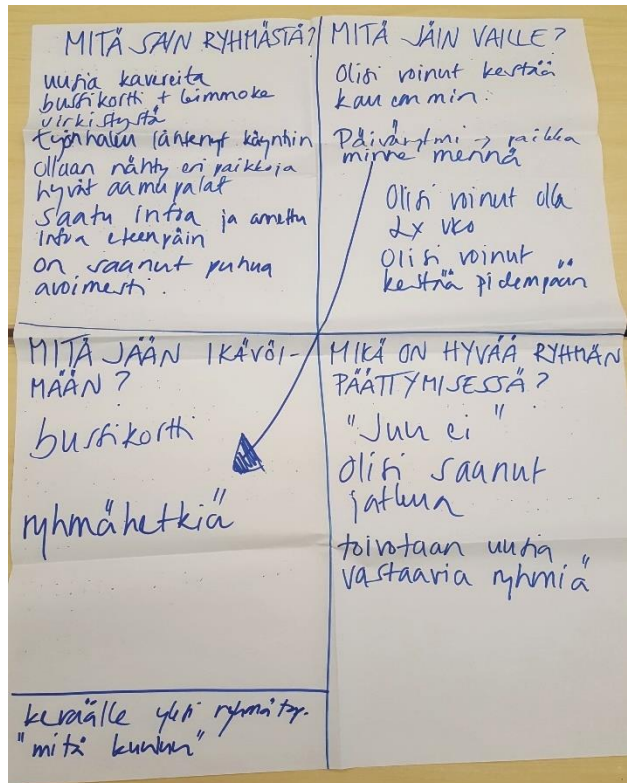 MITÄ SAIN RYHMÄSTÄ?
uusia kavereita
bussikortti + Gimmoke
virkistystä
työnhaku lähtenyt käyntiin
ollaan nähty eri paikkoja
hyvät aamupalat
saatu infoa ja annettu
infoa eteenpäin
on saanut puhua
avoimesti.
MITÄ JÄIN VAILLE?
Olisi voinut kestää
kauemmin.
Päivärytmi → paikka
minne mennä
Olisi voinut olla
2x vko
Olisi voinut
kestää pidempään
MITÄ JÄÄN IKÄVÖI-
MÄÄN?
bussikortti
ryhmähetkiä
MIKÄ ON HYVÄÄ RYHMÄN
PÄÄTTYMISESSÄ?
"Juu ei"
Olisi saanut
jatkua
toivotaan uusia
vastaavia ryhmiä
keväälle yksi ryhmätap.
"mitä kuuluu"